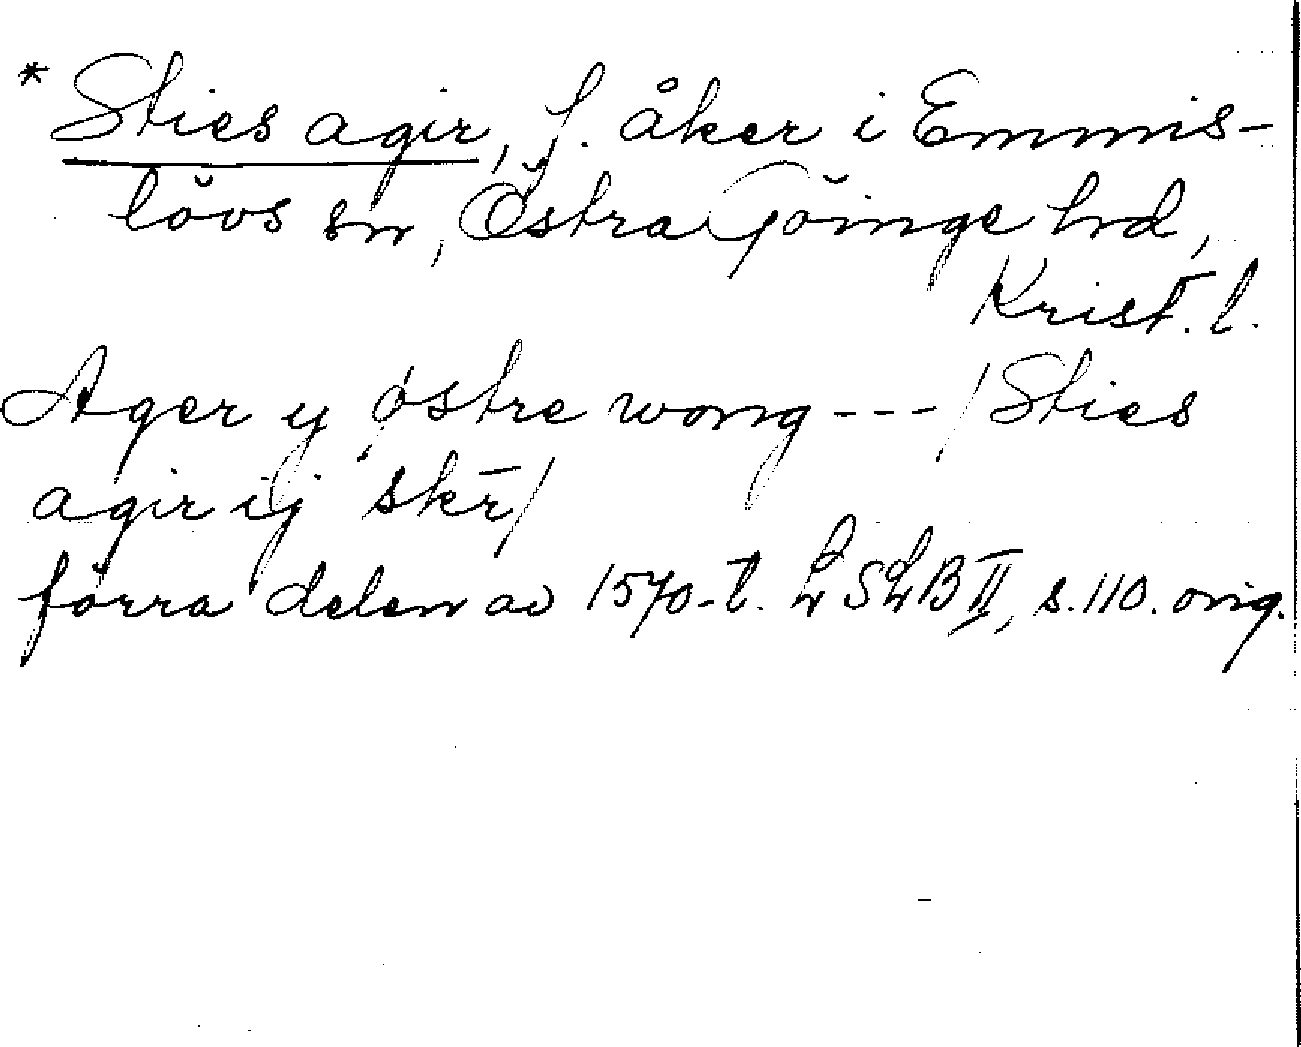 * Sties agir, f. åker i Emmis-
lövs sn, Östra Göinge hrd,
Krist. l.
Ager y østre wong --- / Sties
agir ij skr̄ /
förra delen av 1570-t. LSLB II, s. 110. orig.